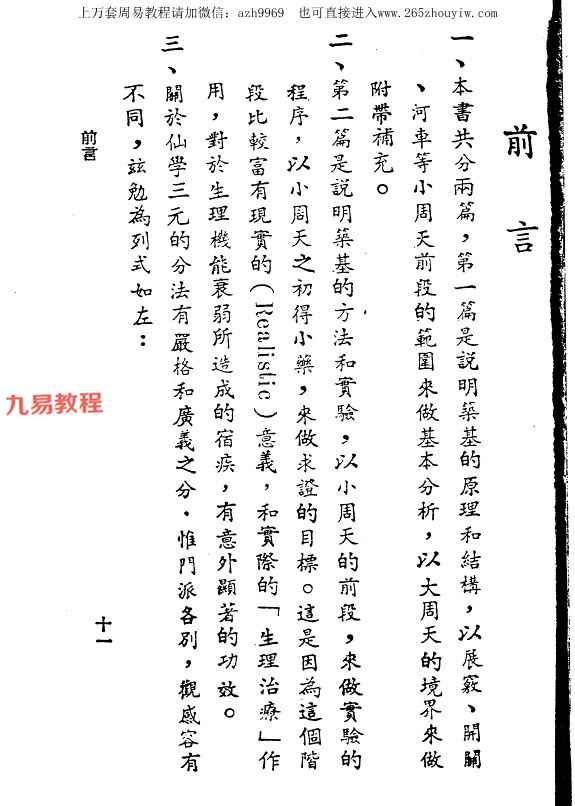 上万套周易教程请加微信：azh9969 也可直接进入www.265zhouyiw.com
前言
一、本書共分兩篇，第一篇是説明築基的原理和結構，以展竅、開關
、河車等小周天前段的範圍來做基本分析，以大周天的境界來做
附帶補充。
二、第二篇是説明築基的方法和實驗，以小周天的前段，來做實驗的
程序，以小周天之初得小藥，來做求證的目標。這是因為這個階
段比較富有現實的(Realistic)意義，和實際的「生理治療」作
用，對於生理機能衰弱所造成的宿疾，有意外顯著的功效。
三、關於仙學三元的分法有嚴格和廣義之分．惟門派各別，觀感容有
不同，玆勉為列式如左：
前言
十一
九易教程